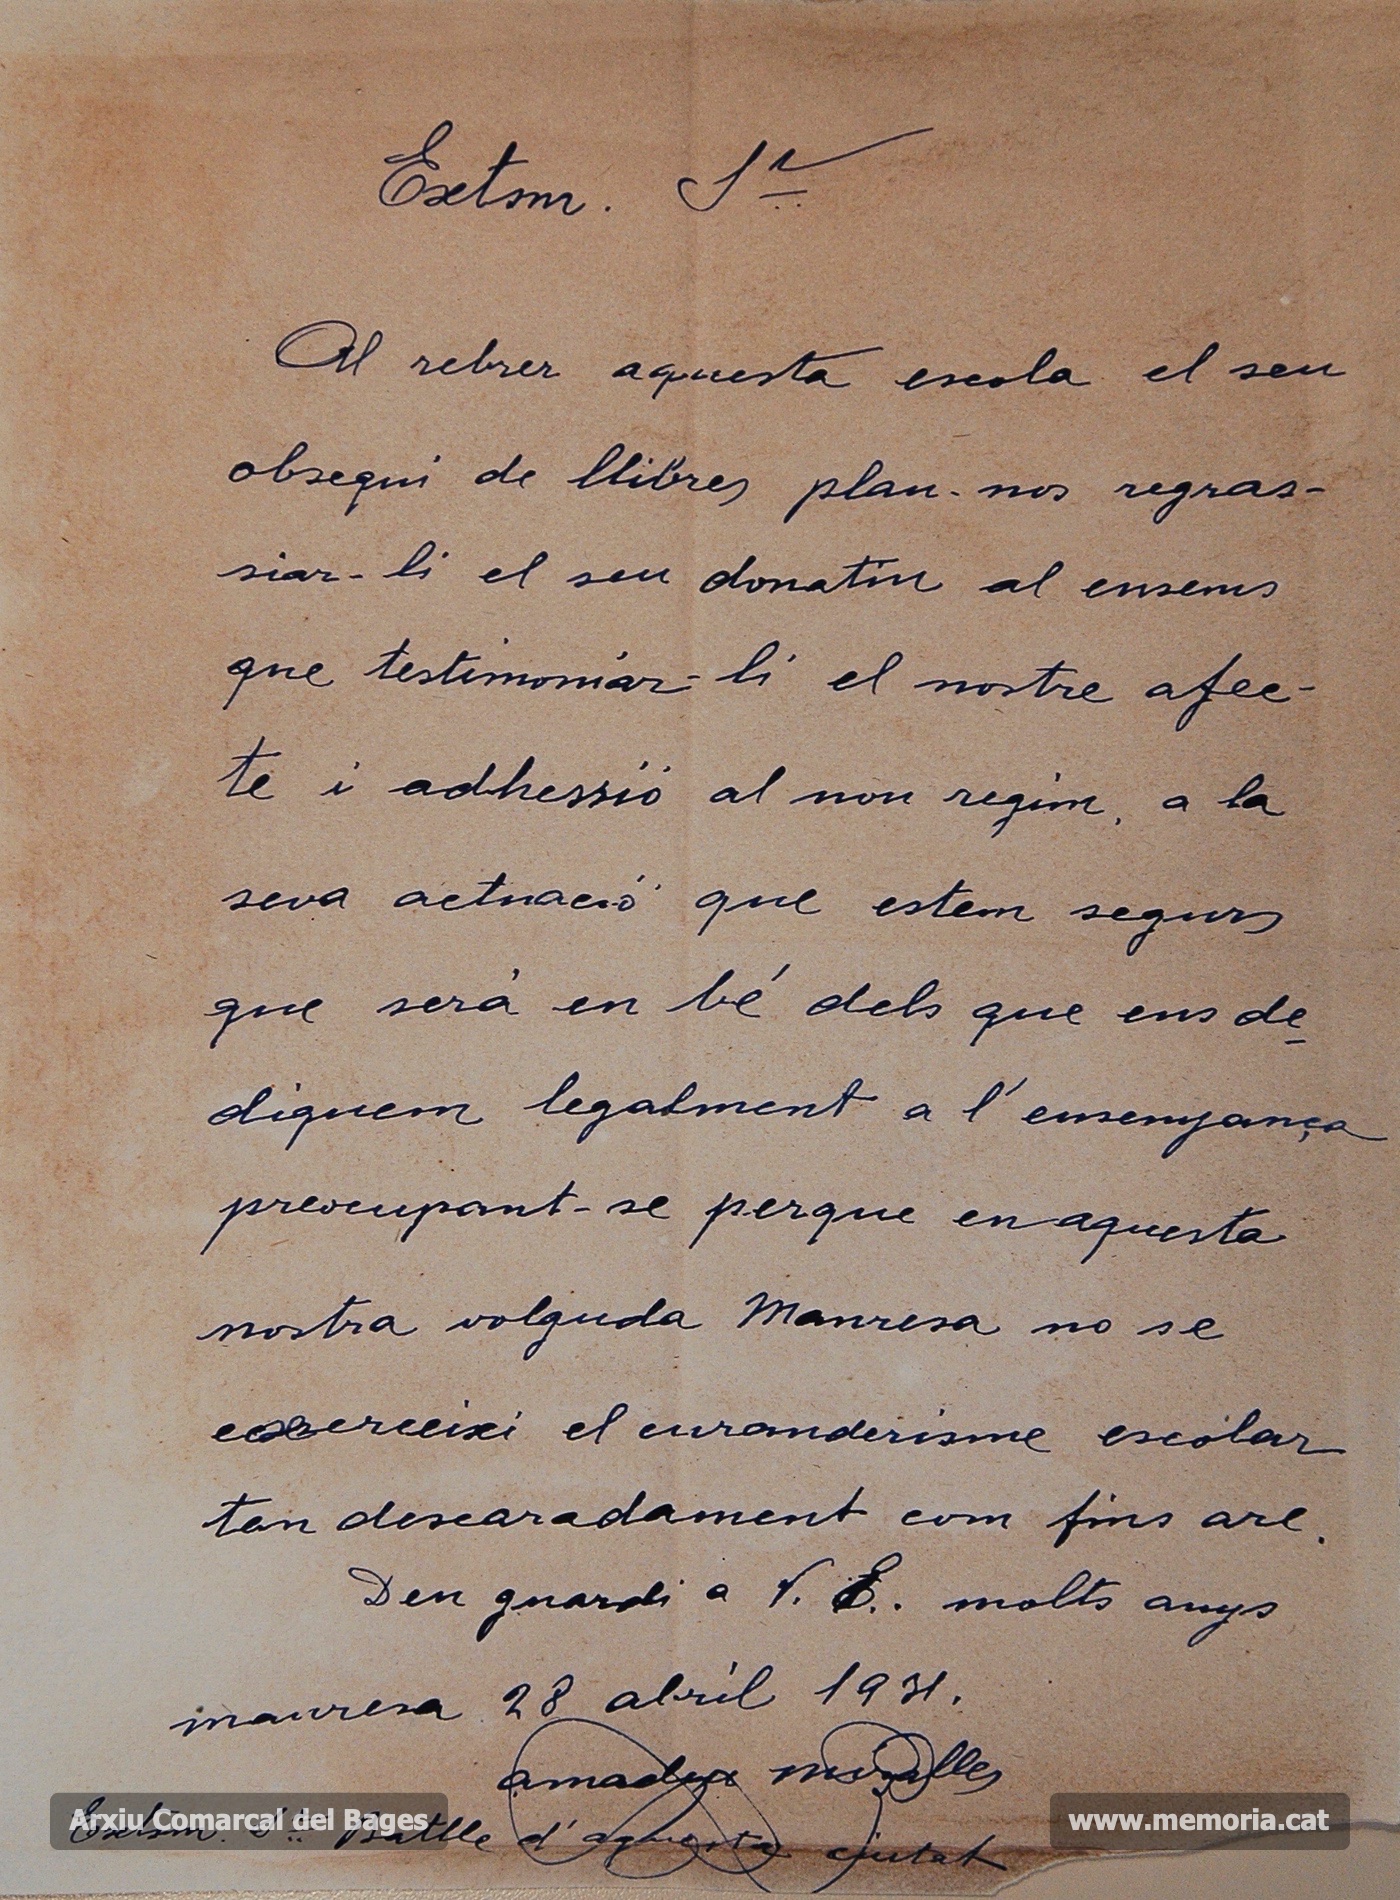 Extsm. Sr.
Al rebrer aquesta escola el seu
obsequi de llibres plau-nos regras-
siar-li el seu donatiu al ensems
que testimoniar-li el nostre afec-
te i adhessió al nou regim, a la
seva actuació que estem segurs
que será en bé dels que ens de-
diquem legalment a l'ensenyança
preocupant-se perque en aquesta
nostra volguda Manresa no se
exerceixi el curanderisme escolar
tan descaradament com fins are.
Deu guardi a V. E. molts anys
manresa 28 abril 1931.
amadeu miralles
Extsm. Sr. Batlle d'aquesta ciutat
Arxiu Comarcal del Bages
www.memoria.cat